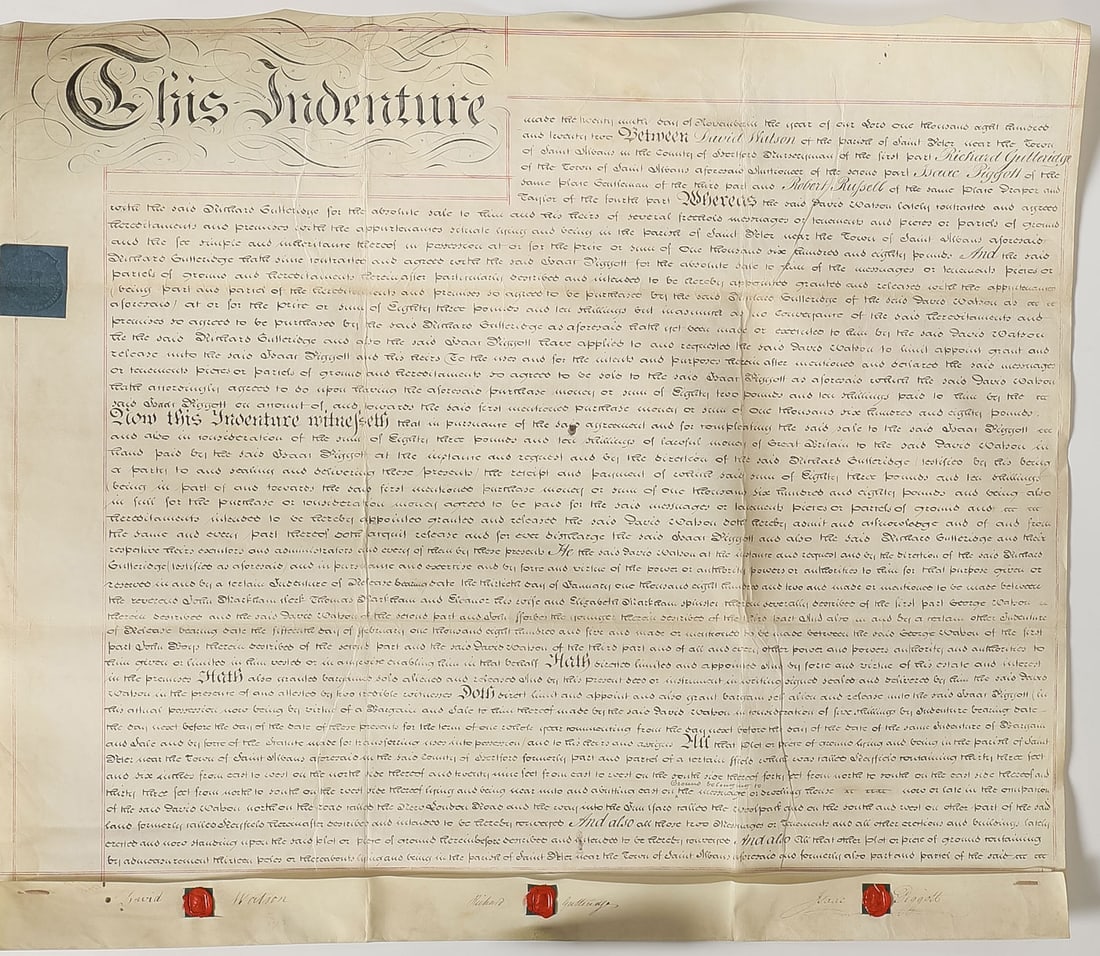 This Indenture
made the twenty ninth day of November in the year of our Lord one thousand eight hundred
and twenty two Between David Watson of the parish of Saint Peter near the Town
of Saint Albans in the County of Hertford Nurseryman of the first part Richard Gutteridge
of the Town of Saint Albans aforesaid Auctioneer of the second part Isaac Piggott of the
same place Gentleman of the third part and Robert Russell of the same place Draper and
Taylor of the fourth part Whereas the said David Watson lately contracted and agreed
with the said Richard Gutteridge for the absolute sale to him and his heirs of several freehold messuages or tenements and pieces or parcels of ground
hereditaments and premises with the appurtenances situate lying and being in the parish of Saint Peter near the Town of Saint Albans aforesaid
and the fee simple and inheritance thereof in possession at or for the price or sum of One thousand six hundred and eighty pounds And the said
Richard Gutteridge hath since contracted and agreed with the said Isaac Piggott for the absolute sale to him of the messuages or tenements pieces or
parcels of ground and hereditaments hereinafter particularly described and intended to be hereby appointed granted and released with the appurtenances
(being part and parcel of the hereditaments and premises so agreed to be purchased by the said Richard Gutteridge of the said David Watson as
aforesaid) at or for the price or sum of Eighty three pounds and ten shillings but inasmuch as no conveyance of the said hereditaments and
premises so agreed to be purchased by the said Richard Gutteridge as aforesaid hath yet been made or executed to him by the said David Watson
he the said Richard Gutteridge and also the said Isaac Piggott have applied to and requested the said David Watson to limit appoint grant and
release unto the said Isaac Piggott and his heirs To the uses and for the intents and purposes herein after mentioned and declared the said messuages
or tenements pieces or parcels of ground and hereditaments so agreed to be sold to the said Isaac Piggott as aforesaid which the said David Watson
hath accordingly agreed to do upon having the aforesaid purchase money or sum of Eighty two pounds and ten shillings paid to him by the
said Isaac Piggott on account of and towards the said first mentioned purchase money or sum of one thousand six hundred and eighty pounds
Now this Indenture witnesseth that in pursuance of the said agreement and for compleating the said sale to the said Isaac Piggott
and also in consideration of the sum of Eighty three pounds and ten shillings of lawful money of Great Britain to the said David Watson in
hand paid by the said Isaac Piggott at the instance and request and by the direction of the said Richard Gutteridge (testified by his being
a party to and sealing and delivering these presents) the receipt and payment of which said sum of Eighty three pounds and ten shillings
(being in part of and towards the said first mentioned purchase money or sum of one thousand six hundred and eighty pounds and being also
in full for the purchase or consideration money agreed to be paid for the said messuages or tenements pieces or parcels of ground and
hereditaments intended to be hereby appointed granted and released the said David Watson doth hereby admit and acknowledge and of and from
the same and every part thereof doth acquit release and for ever discharge the said Isaac Piggott and also the said Richard Gutteridge and their
respective heirs executors and administrators and every of them by these presents He the said David Watson at the instance and request and by the direction of the said Richard
Gutteridge testified as aforesaid and in pursuance and exercise and by force and virtue of the power or authority powers or authorities to him for that purpose given or
reserved in and by a certain Indenture of Release bearing date the thirtieth day of January one thousand eight hundred and two and made or mentioned to be made between
the reverend John Markham Clerk Thomas Markham and Eleanor his wife and Elizabeth Markham spinster therein severally described of the first part George Watson
therein described and the said David Watson of the second part and John the younger therein described of the third part And also in and by a certain other Indenture
of Release bearing date the fifteenth day of February one thousand eight hundred and five and made or mentioned to be made between the said George Watson of the first
part John therein described of the second part and the said David Watson of the third part and of all and every other power and powers authority and authorities to
him given or limited in him vested or in anywise enabling him in that behalf Hath directed limited and appointed And by force and virtue of his estate and interest
in the premises Hath also granted bargained sold aliened and released And by this present deed or instrument in writing signed sealed and delivered by him the said David
Watson in the presence of and attested by two credible witnesses Doth direct limit and appoint and also grant bargain sell alien and release unto the said Isaac Piggott (in
his actual possession now being by virtue of a Bargain and Sale to him thereof made by the said David Watson in consideration of five shillings by Indenture bearing date
the day next before the day of the date of these presents for the term of one whole year commencing from the day next before the day of the date of the same Indenture of Bargain
and Sale and by force of the Statute made for transferring uses into possession) and to his heirs and assigns All that plot or piece of ground lying and being in the parish of Saint
Peter near the Town of Saint Albans aforesaid in the said County of Hertford formerly part and parcel of a certain ffield which was called containing thirty three feet
and six inches from east to west on the north side thereof and twenty nine feet from east to west on the south side thereof forty feet from north to south on the east side thereof and
thirty three feet from north to south on the west side thereof lying and being near unto and abutting east on the
Ground belonging to
messuage or dwelling house now or late in the occupation
of the said David Watson north on the road called the New London Road and the way into the called the Woolpack and on the south and west on other part of the said
land formerly called hereinafter described and intended to be hereby conveyed And also all those two Messuages or Tenements and all other erections and buildings lately
erected and now standing upon the said plot or piece of ground hereinbefore described and intended to be hereby conveyed And also All that other plot or piece of ground containing
by admeasurement thirteen poles or thereabouts lying and being in the parish of Saint Peter near the Town of Saint Albans aforesaid and formerly also part and parcel of the said
David Watson
Richard Gutteridge
Isaac Piggott